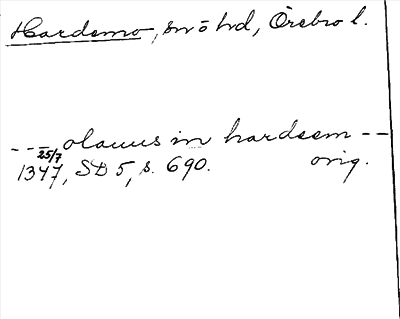 Hardemo, sn ö hd, Örebro l.
- - - olauus in hardeem - -
25/7
1347, SD 5, s. 690. orig.